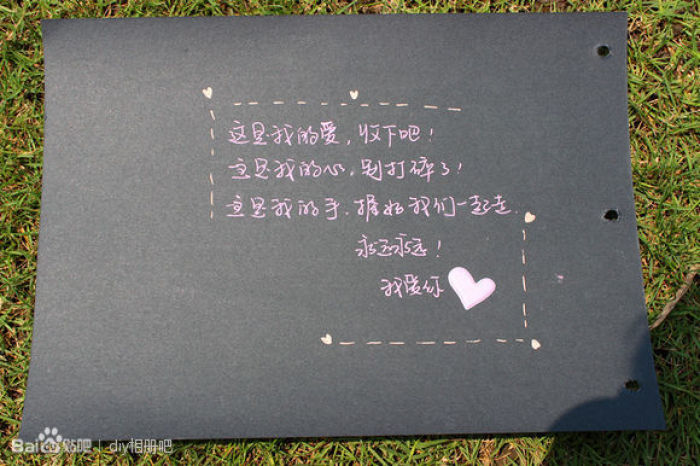 这是我的爱,收下吧!
这是我的心,别打碎了!
这是我的手,握好我们一起走.
永远永远!
我爱你
Bai贴吧 | diy相册吧